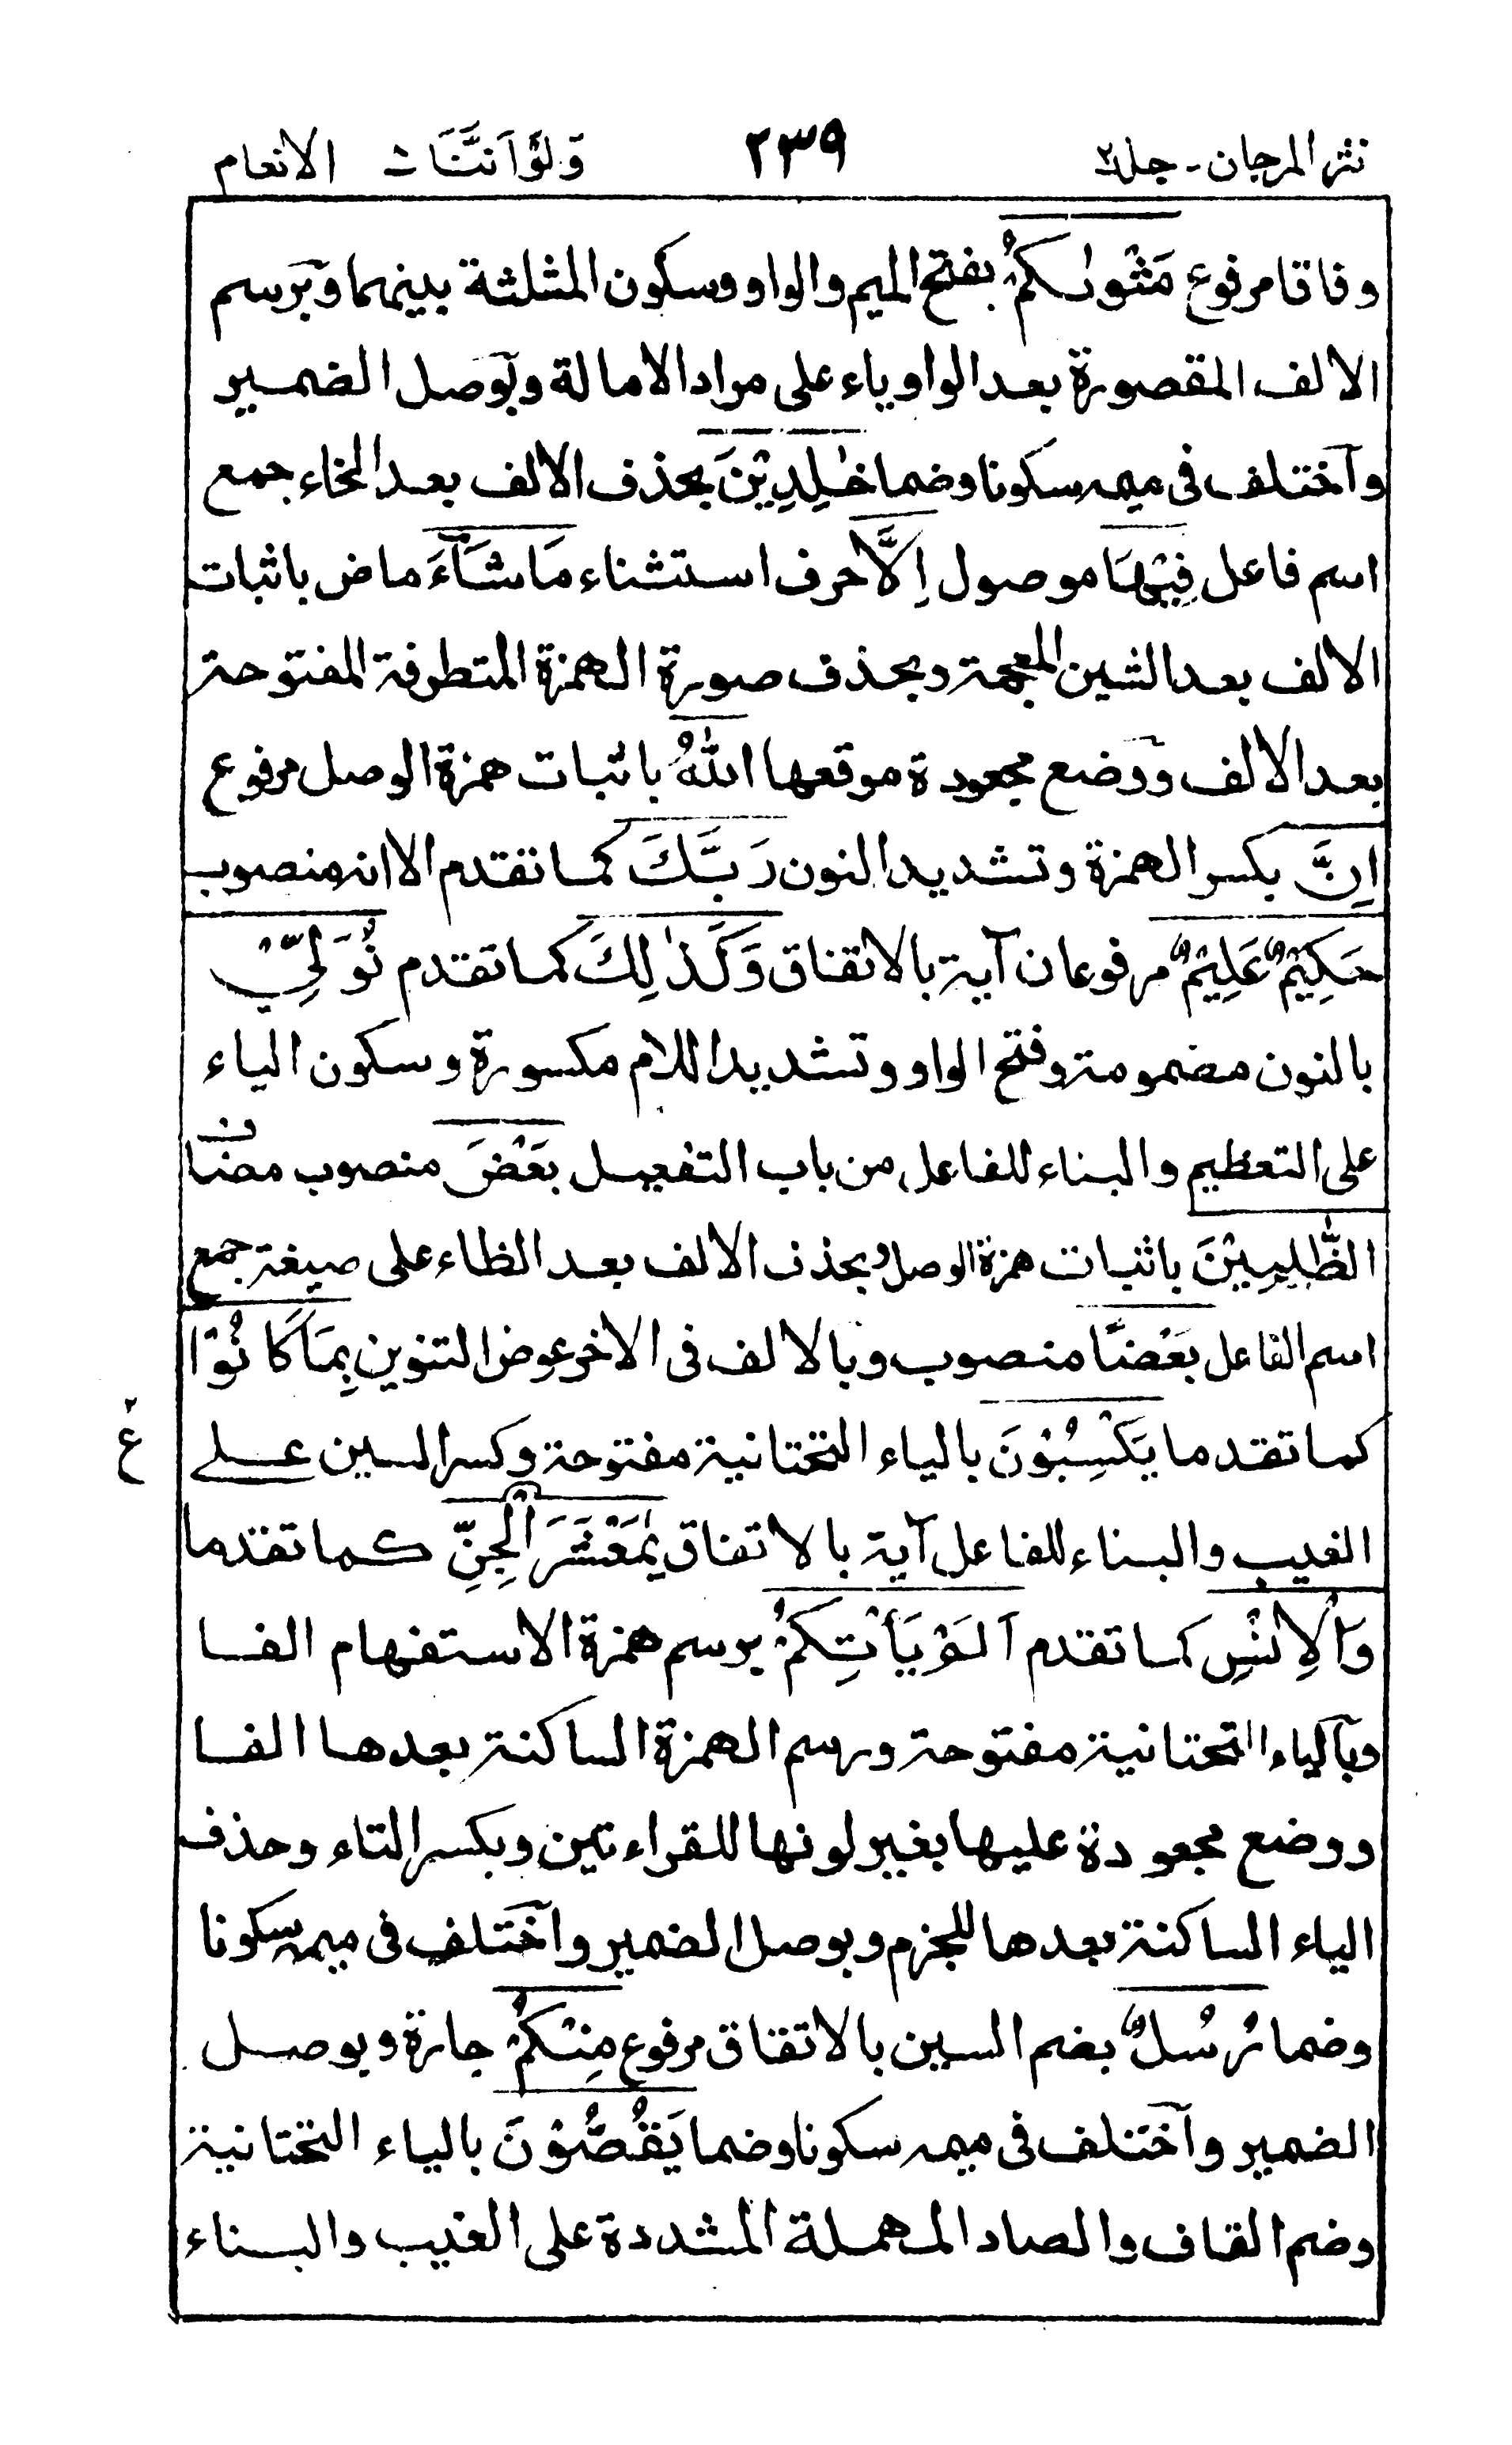 نثر المرجان - جلد ٢ ٢٣٩ وَلَوْاَنَّنَا ٨ الانعام
وفاقا مرفوع مَثْوٰىكُمْ بفتح الميم والواو وسكون المثلثة بينهما وبرسم
الالف المقصورة بعد الواو ياء على مراد الامالة وبوصل الضمير
واختلف فى ميمه سكونا وضما خٰلِدِيْنَ بحذف الالف بعد الخاء جمع
اسم فاعل فِيْهَا موصول اِلَّا حرف استثناء مَا شَآءَ ماض باثبات
الالف بعد الشين المعجمة وبحذف صورة الهمزة المتطرفة المفتوحة
بعد الالف ووضع مجعودة موقعها اللّٰهُ باثبات همزة الوصل مرفوع
اِنَّ بكسر الهمزة وتشديد النون رَبَّكَ كما تقدم الا انه منصوب
حَكِيْمٌ عَلِيْمٌ مرفوعان آية بالاتفاق وَكَذٰلِكَ كما تقدم نُوَلِّيْ
بالنون مضمومة وفتح الواو وتشديد اللام مكسورة وسكون الياء
على التعظيم والبناء للفاعل من باب التفعيل بَعْضَ منصوب مضاف
الظّٰلِمِيْنَ باثبات همزة الوصل وبحذف الالف بعد الظاء على صيغة جمع
اسم الفاعل بَعْضًا منصوب وبالالف فى الاخر عوض التنوين بِمَا كَانُوْا
كما تقدما يَكْسِبُوْنَ بالياء التحتانية مفتوحة وكسر السين على
ع ٢
الغيب والبناء للفاعل آية بالاتفاق يٰمَعْشَرَ الْجِنِّ كما تقدما
وَالْاِنْسِ كما تقدم اَلَمْ يَأْتِكُمْ برسم همزة الاستفهام الفا
وبالياء التحتانية مفتوحة ورسم الهمزة الساكنة بعدها الفا
ووضع مجعودة عليها بغير لونها للقراءتين وبكسر التاء وحذف
الياء الساكنة بعدها للجزم وبوصل الضمير واختلف فى ميمه سكونا
وضما رُسُلٌ بضم السين بالاتفاق مرفوع مِنْكُمْ جارة وبوصل
الضمير واختلف فى ميمه سكونا وضما يَقُصُّوْنَ بالياء التحتانية
وضم القاف والصاد المهملة المشددة على الغيب والبناء